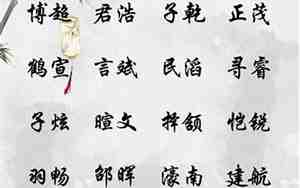 博超 君浩 子乾 正茂
鹤宣 言斌 民滔 寻睿
子炫 暄文 择颔 恺锐
羽畅 邵晖 濠南 建航